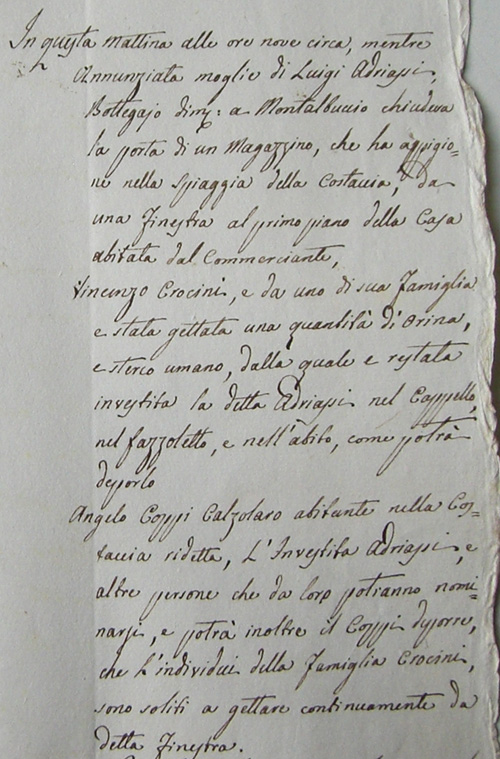 In questa mattina alle ore nove circa, mentre
Annunziata moglie di Luigi Adriassi,
Bottegajo dim: a Montalbuccio chiudeva
la porta di un Magazzino, che ha appigio=
ne nella Spiaggia della Costaccia, da
una Finestra al primo piano della Casa
abitata dal Commerciante,
Vincenzo Crocini, e da uno di sua Famiglia
e stata gettata una quantità d'Orina,
e sterco umano, dalla quale e restata
investita la detta Adriassi nel Cappello,
nel fazzoletto, e nell'àbito, come potrà
deporlo
Angelo Coppi Calzolaro abitante nella Cos=
taccia ridetta, L'Investita Adriassi, e
altre persone che da loro potranno nomi=
narsi, e potrà inoltre il Coppi deporre,
che l'individui della Famiglia Crocini,
sono soliti a gettare continuamente da
detta Finestra.